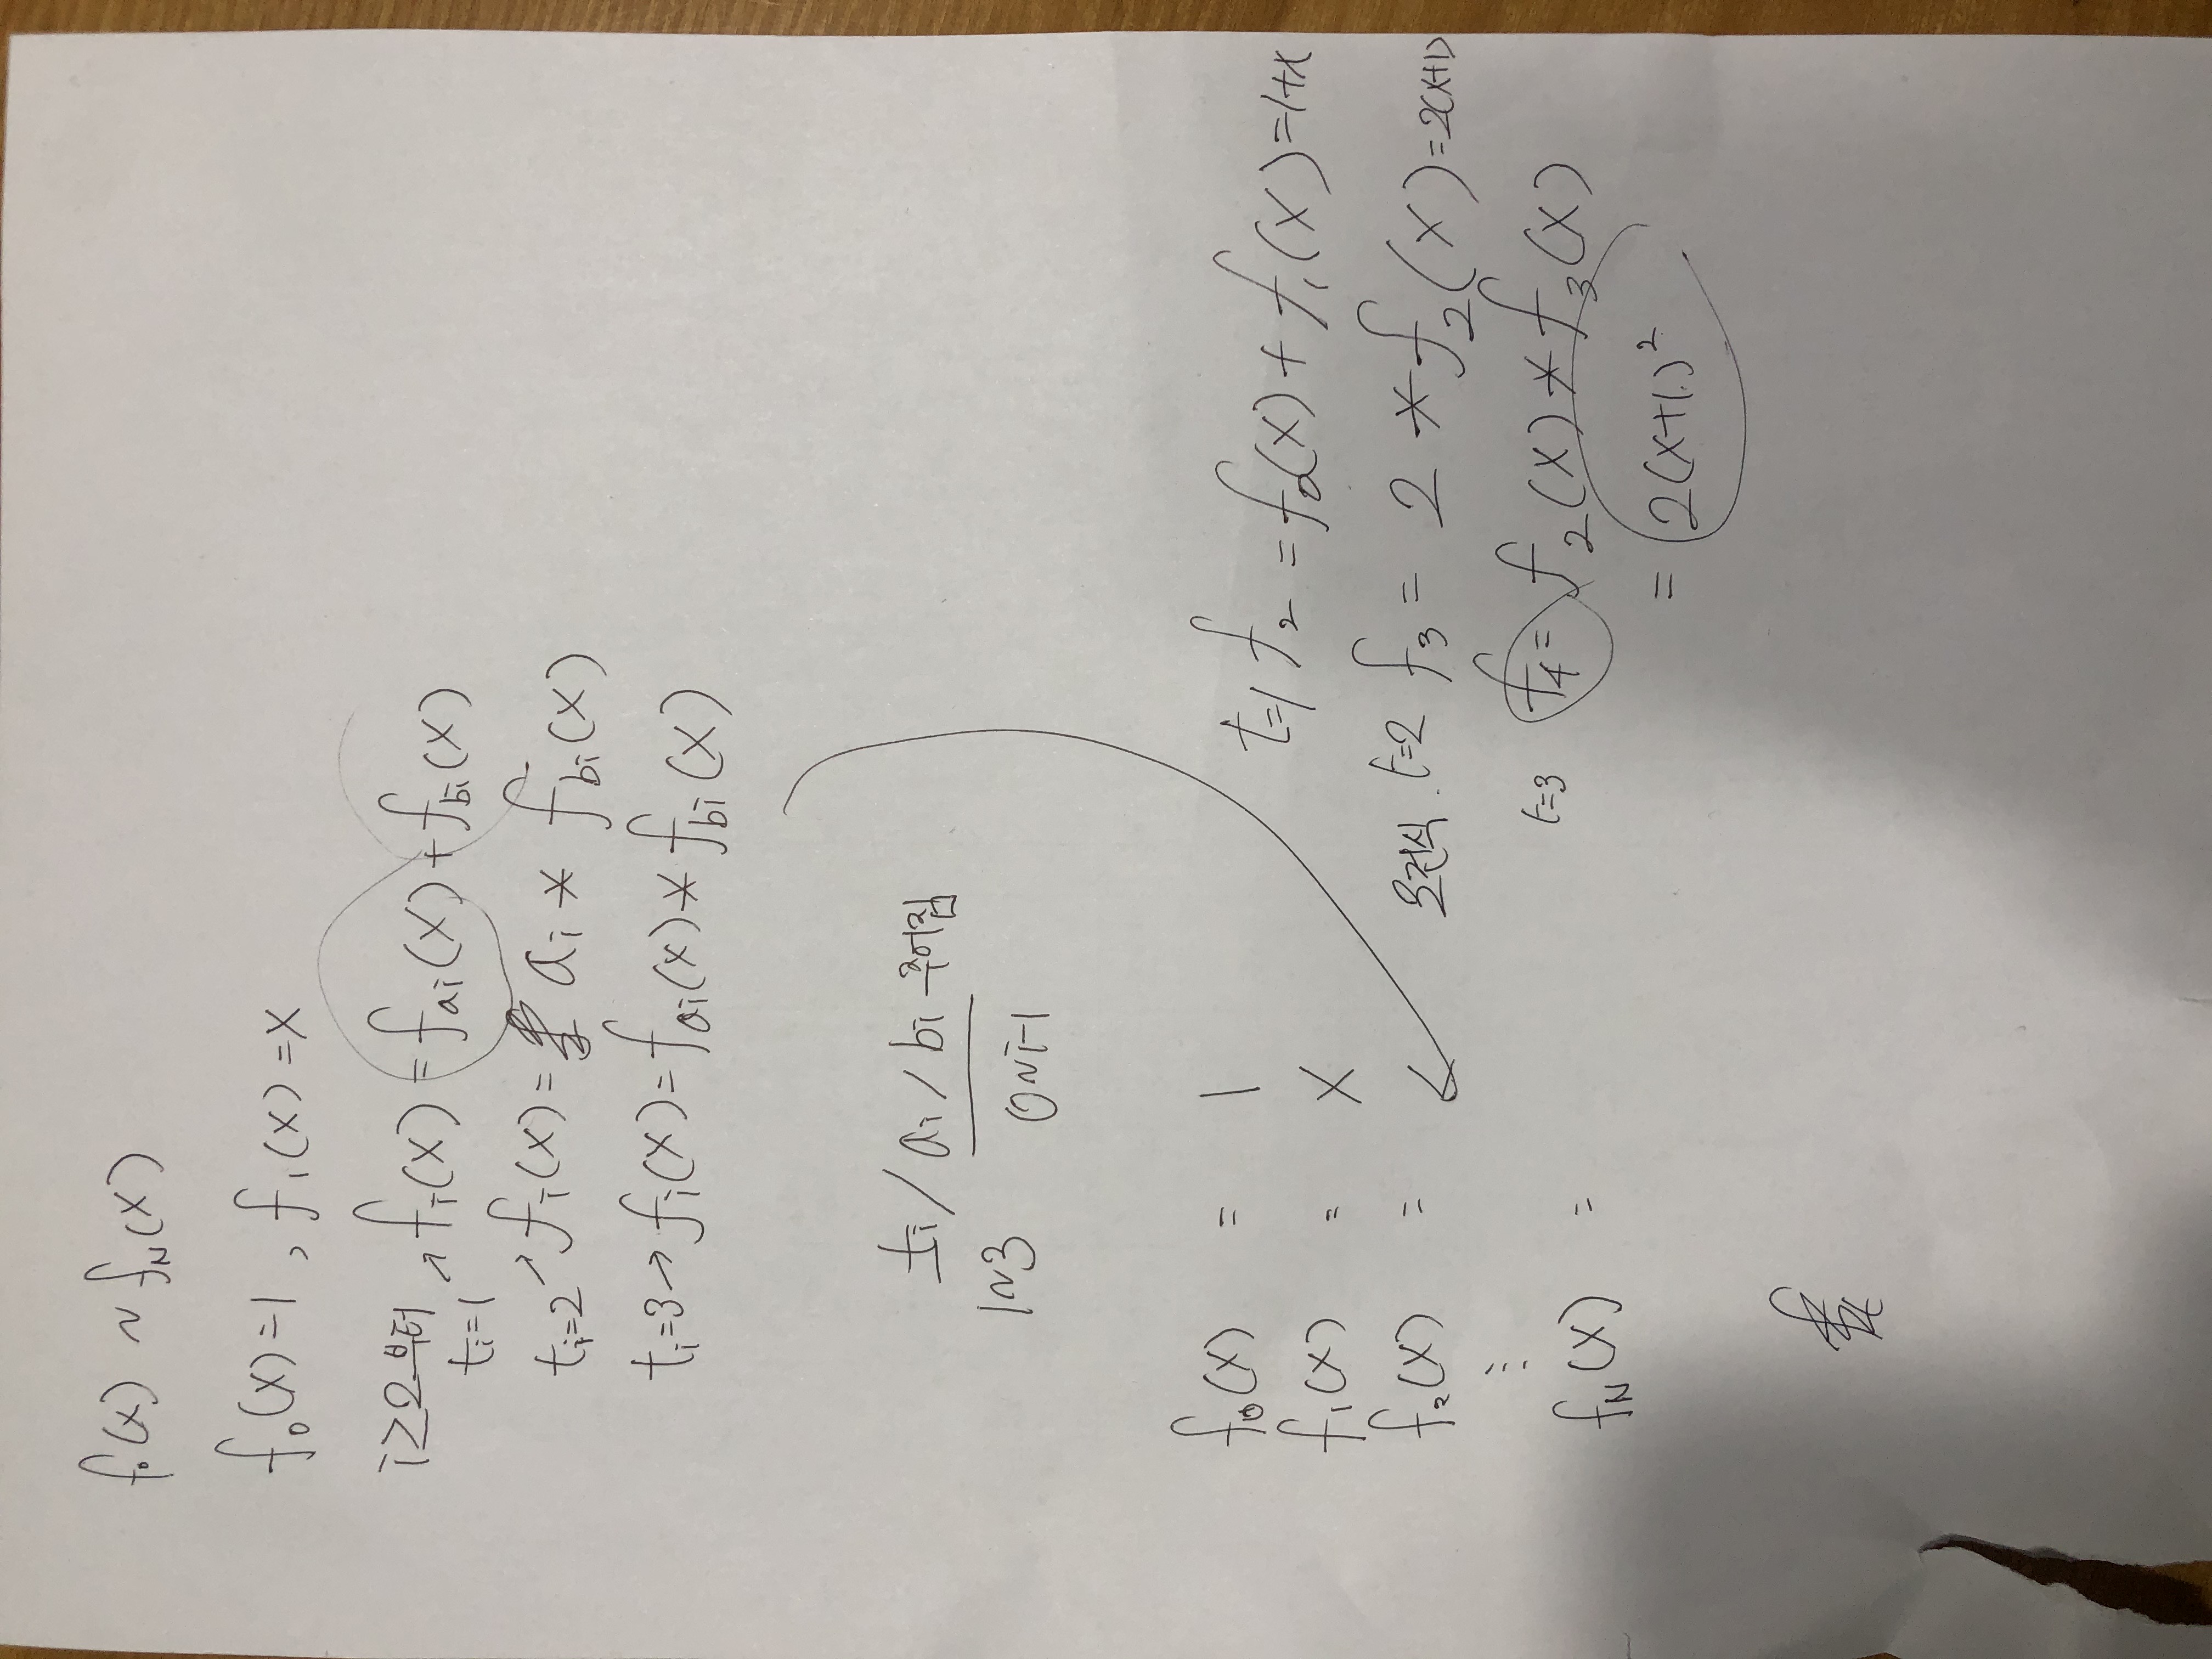 f₀(x) ~ f_N(x)
f₀(x)=1, f₁(x)=x
i≥2부터
tᵢ=1 → fᵢ(x) = f_aᵢ(x) + f_bᵢ(x)
tᵢ=2 → fᵢ(x) = aᵢ * f_bᵢ(x)
tᵢ=3 → fᵢ(x) = f_aᵢ(x) * f_bᵢ(x)
tᵢ / aᵢ / bᵢ 주어짐
1~3 0~i-1
f₀(x) = 1
f₁(x) = x
f₂(x) =
⋮
f_N(x) =
t=1 f₂ = f₀(x) + f₁(x) = 1+x
t=2 f₃ = 2 * f₂(x) = 2(x+1)
t=3 f₄ = f₂(x) * f₃(x)
= 2(x+1)²